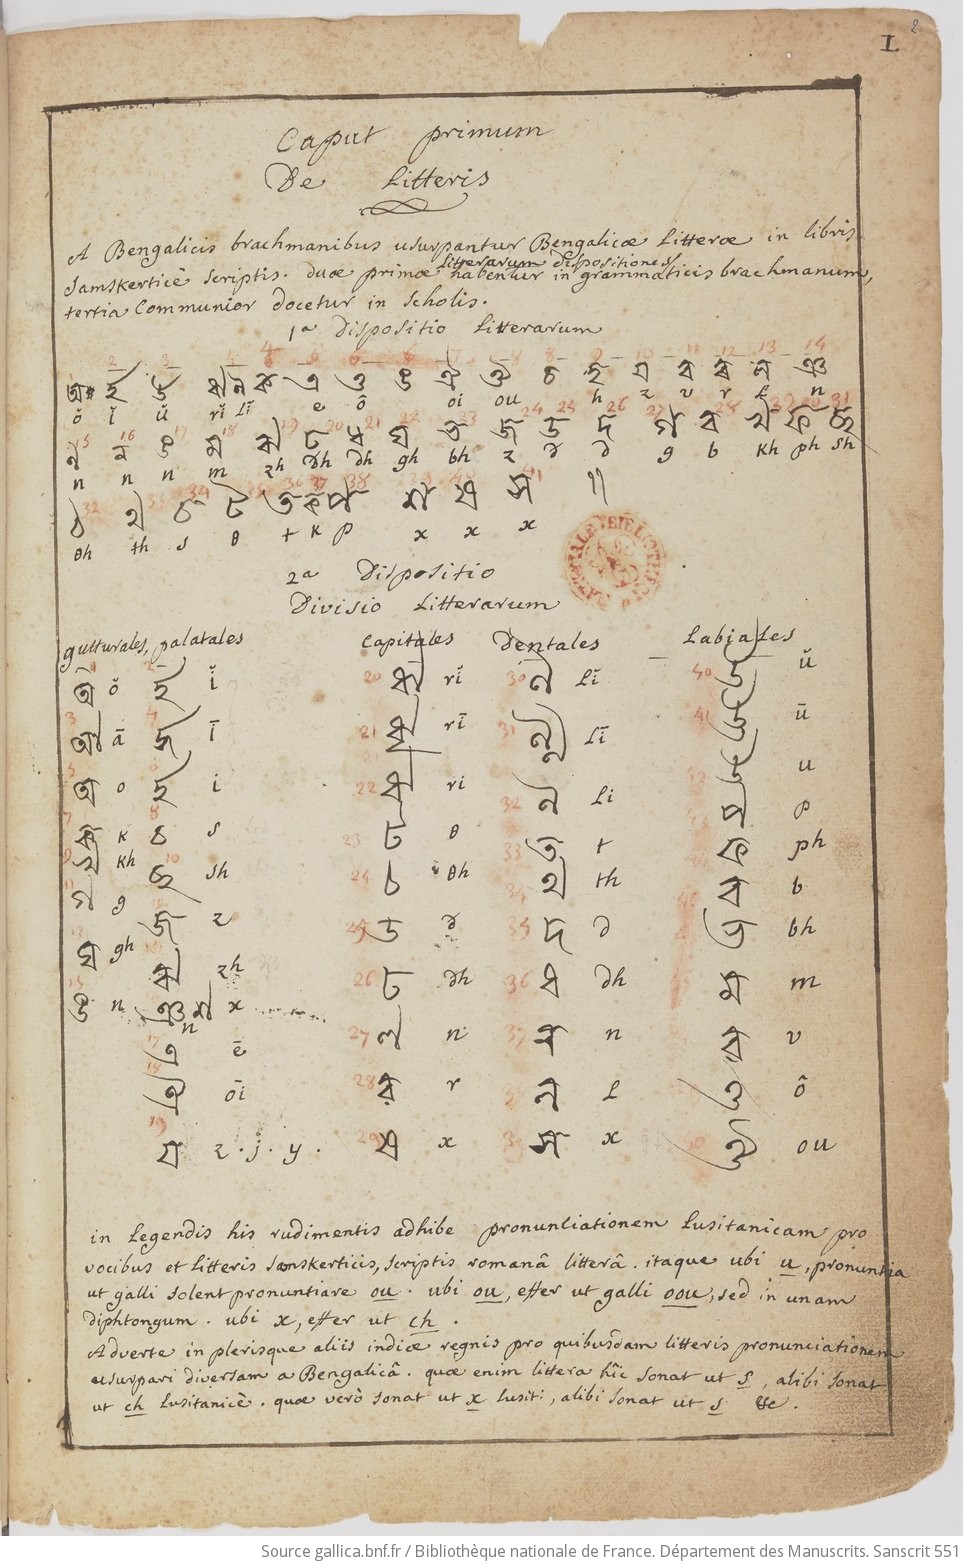 2
I.
Caput primum
De Litteris
A Bengalicis brachmanibus usurpantur Bengalicæ Litteræ in libris
Samskerticè scriptis. duæ primæ litterarum dispositiones habentur in grammaticis brachmanum,
tertia communior docetur in scholis.
1a Dispositio Litterarum
2 3 4 12 13 14
অ ই উ ঋ ঌ ক এ ও ঙ ঐ ঔ চ হ য ব র ল ঞ
ŏ ĭ ŭ rĭ Lĭ e ô oi ou h z v r L n
ণ ন ঙ ম ঝ ঢ ধ ঘ ভ জ ড দ গ ব খ ফ ছ
n n n m zh dh dh gh bh z d d g b kh ph sh
ঠ থ চ ট ত ক প শ ষ স ॥
θh th s θ t k p x x x
2a Dispositio
Divisio Litterarum
gutturales, palatales capitales Dentales Labiales
অ ŏ ই ĭ 20 ঋ rĭ 30 ঌ Lĭ 40 উ ŭ
আ ā ঈ ī 21 ৠ rī 31 ৡ Lī 41 ঊ ū
অ o ই i 22 ঋ ri 32 ঌ Li উ u
ক k চ s 23 ট θ 33 ত t প p
খ kh ছ sh 24 ঠ θh থ th ফ ph
গ g জ z 25 ড d 35 দ d ব b
ঘ gh ঝ zh 26 ঢ dh 36 ধ dh ভ bh
ঙ n ঞ n শ x 27 ণ n 37 ন n ম m
এ ē 28 র r ল L ব v
ঐ ōi ষ x স x ও ô
19 য z . j . y . ঔ ou
in Legendis his rudimentis adhibe pronuntiationem Lusitanicam pro
vocibus et Litteris samskerticis, scriptis romanâ litterâ. itaque ubi u, pronuntia
ut galli solent pronuntiare ou. ubi ou, effer ut galli oou, sed in unam
diphtongum. ubi x, effer ut ch.
Adverte in plerisque aliis indiæ regnis pro quibusdam litteris pronunciationem
usurpari diversam a Bengalicâ. quæ enim littera hîc sonat ut s, alibi sonat
ut ch Lusitanicè. quæ verò sonat ut x Lusit:, alibi sonat ut s &c.
Source gallica.bnf.fr / Bibliothèque nationale de France. Département des Manuscrits. Sanscrit 551